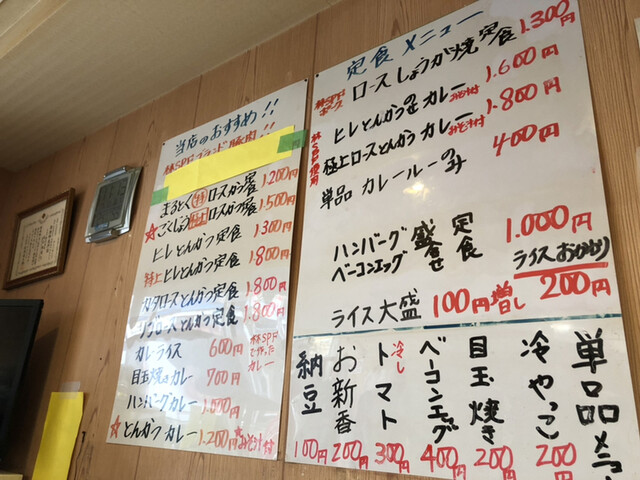 当店のおすすめ!!
林SPFブランド豚肉!!
まるとく 特 ロースかつ定食 1.200円
☆ごくじょう 極上 ロースかつ定食 1.500円
ヒレとんかつ定食 1300円
特上ヒレとんかつ定食 1.800円
カタロースとんかつ定食 1.800円
リブロースとんかつ定食 1.800円
カレーライス 600円
目玉焼のカレー 700円
ハンバーグカレー 1.000円
☆とんかつカレー 1.200円 おみそ汁付
林SPFで作ったカレー
定食メニュー
林SPFポーク ロースしょうが焼定食 1.300円
ヒレとんかつ カレー おみそ汁付 1.600円
極上ロースとんかつカレー おみそ汁付 1.800円
単品 カレールーのみ 400円
ハンバーグ ベーコンエッグ 盛合せ 定食 1.000円
ライス大盛 100円増し
ライスおかわり 200円
単品メニュー
冷やっこ 200円
目玉焼き 200円
ベーコンエッグ 400円
冷しトマト 300円
お新香 200円
納豆 100円